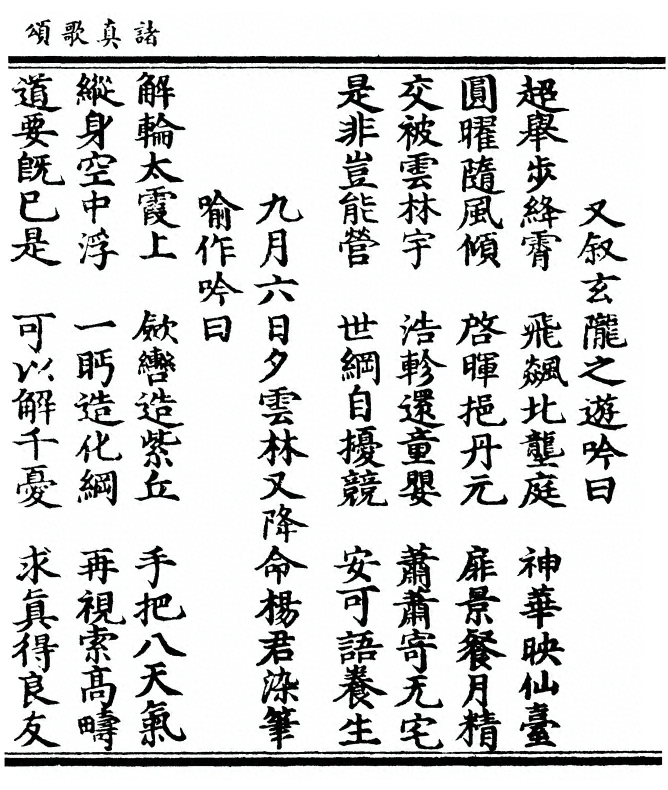 諸真歌頌
又叙玄隴之遊吟曰
超舉步絳霄 飛飆北壟庭 神華映仙臺
圓曜隨風傾 啓暉挹丹元 扉景餐月精
交被雲林宇 浩軫還童嬰 蕭蕭寄无宅
是非豈能營 世綱自擾競 安可語養生
九月六日夕雲林又降命楊君染筆
喻作吟曰
解輪太霞上 斂轡造紫丘 手把八天氣
縱身空中浮 一眄造化綱 再視索高疇
道要旣已是 可以解千憂 求真得良友